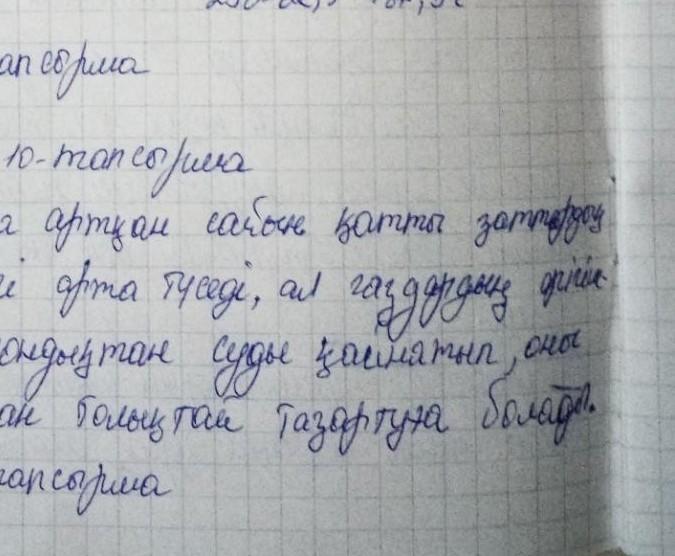 апсырма
10-тапсырма
а артқан сайын қатты заттардың
і арта түседі, ал газдардың ерігіш-
ондықтан суды қайнатып, оны
ан толықтай тазартуға болады.
апсырма